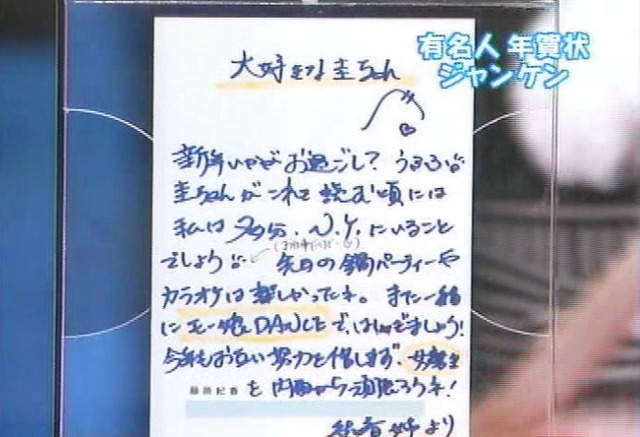 有名人 年賀状
ジャンケン
大好きな圭ちゃん
新年いかがお過ごし? うふふ
圭ちゃんがこれを読む頃には
私は多分、N.Y.にいること
でしょう 先日の鍋パーティーや
カラオケは楽しかったネ。また一緒
にモー娘DANCEで、はしゃぎましょう!
今年もお互い努力を惜します゛、女磨き
を内面から頑張ろうネ!
藤原紀香
紀香姉より